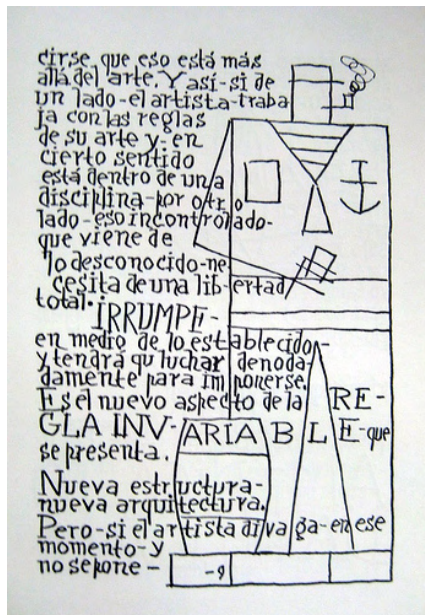 cirse, que eso está más
allá del arte. Y así-si de
un lado-el artista-traba
ja con las reglas
de su arte y-en
cierto sentido
está dentro de una
disciplina-por otro
lado-eso incontrolado-
que viene de
lo desconocido-ne-
cesita de una libertad
total.
IRRUMPE-
en medro de lo establecido-
y tendrá qu luchar denoda-
damente para imponerse.
Es el nuevo aspecto de la RE-
GLA INV-ARIABLE-que
se presenta.
Nueva estructura-
nueva arquitectura.
Pero-si el artista divaga-en ese
momento-y
no se pone-
-9